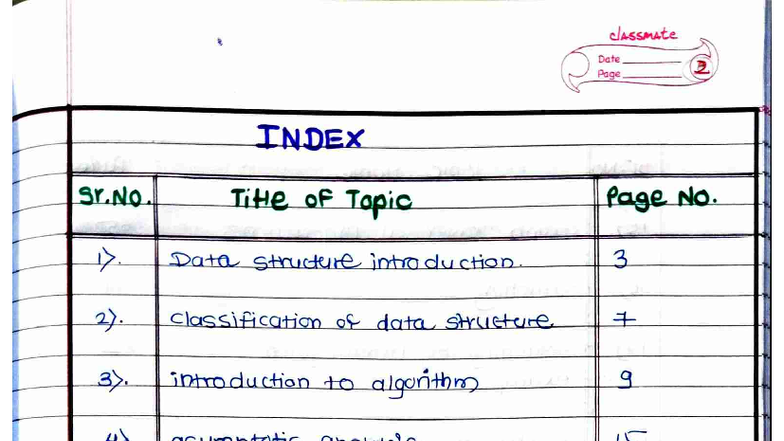 classmate
Date
Page 2
INDEX
Sr.No. Title of Topic Page No.
1). Data structure introduction. 3
2). classification of data structure 7
3). introduction to algorithm 9